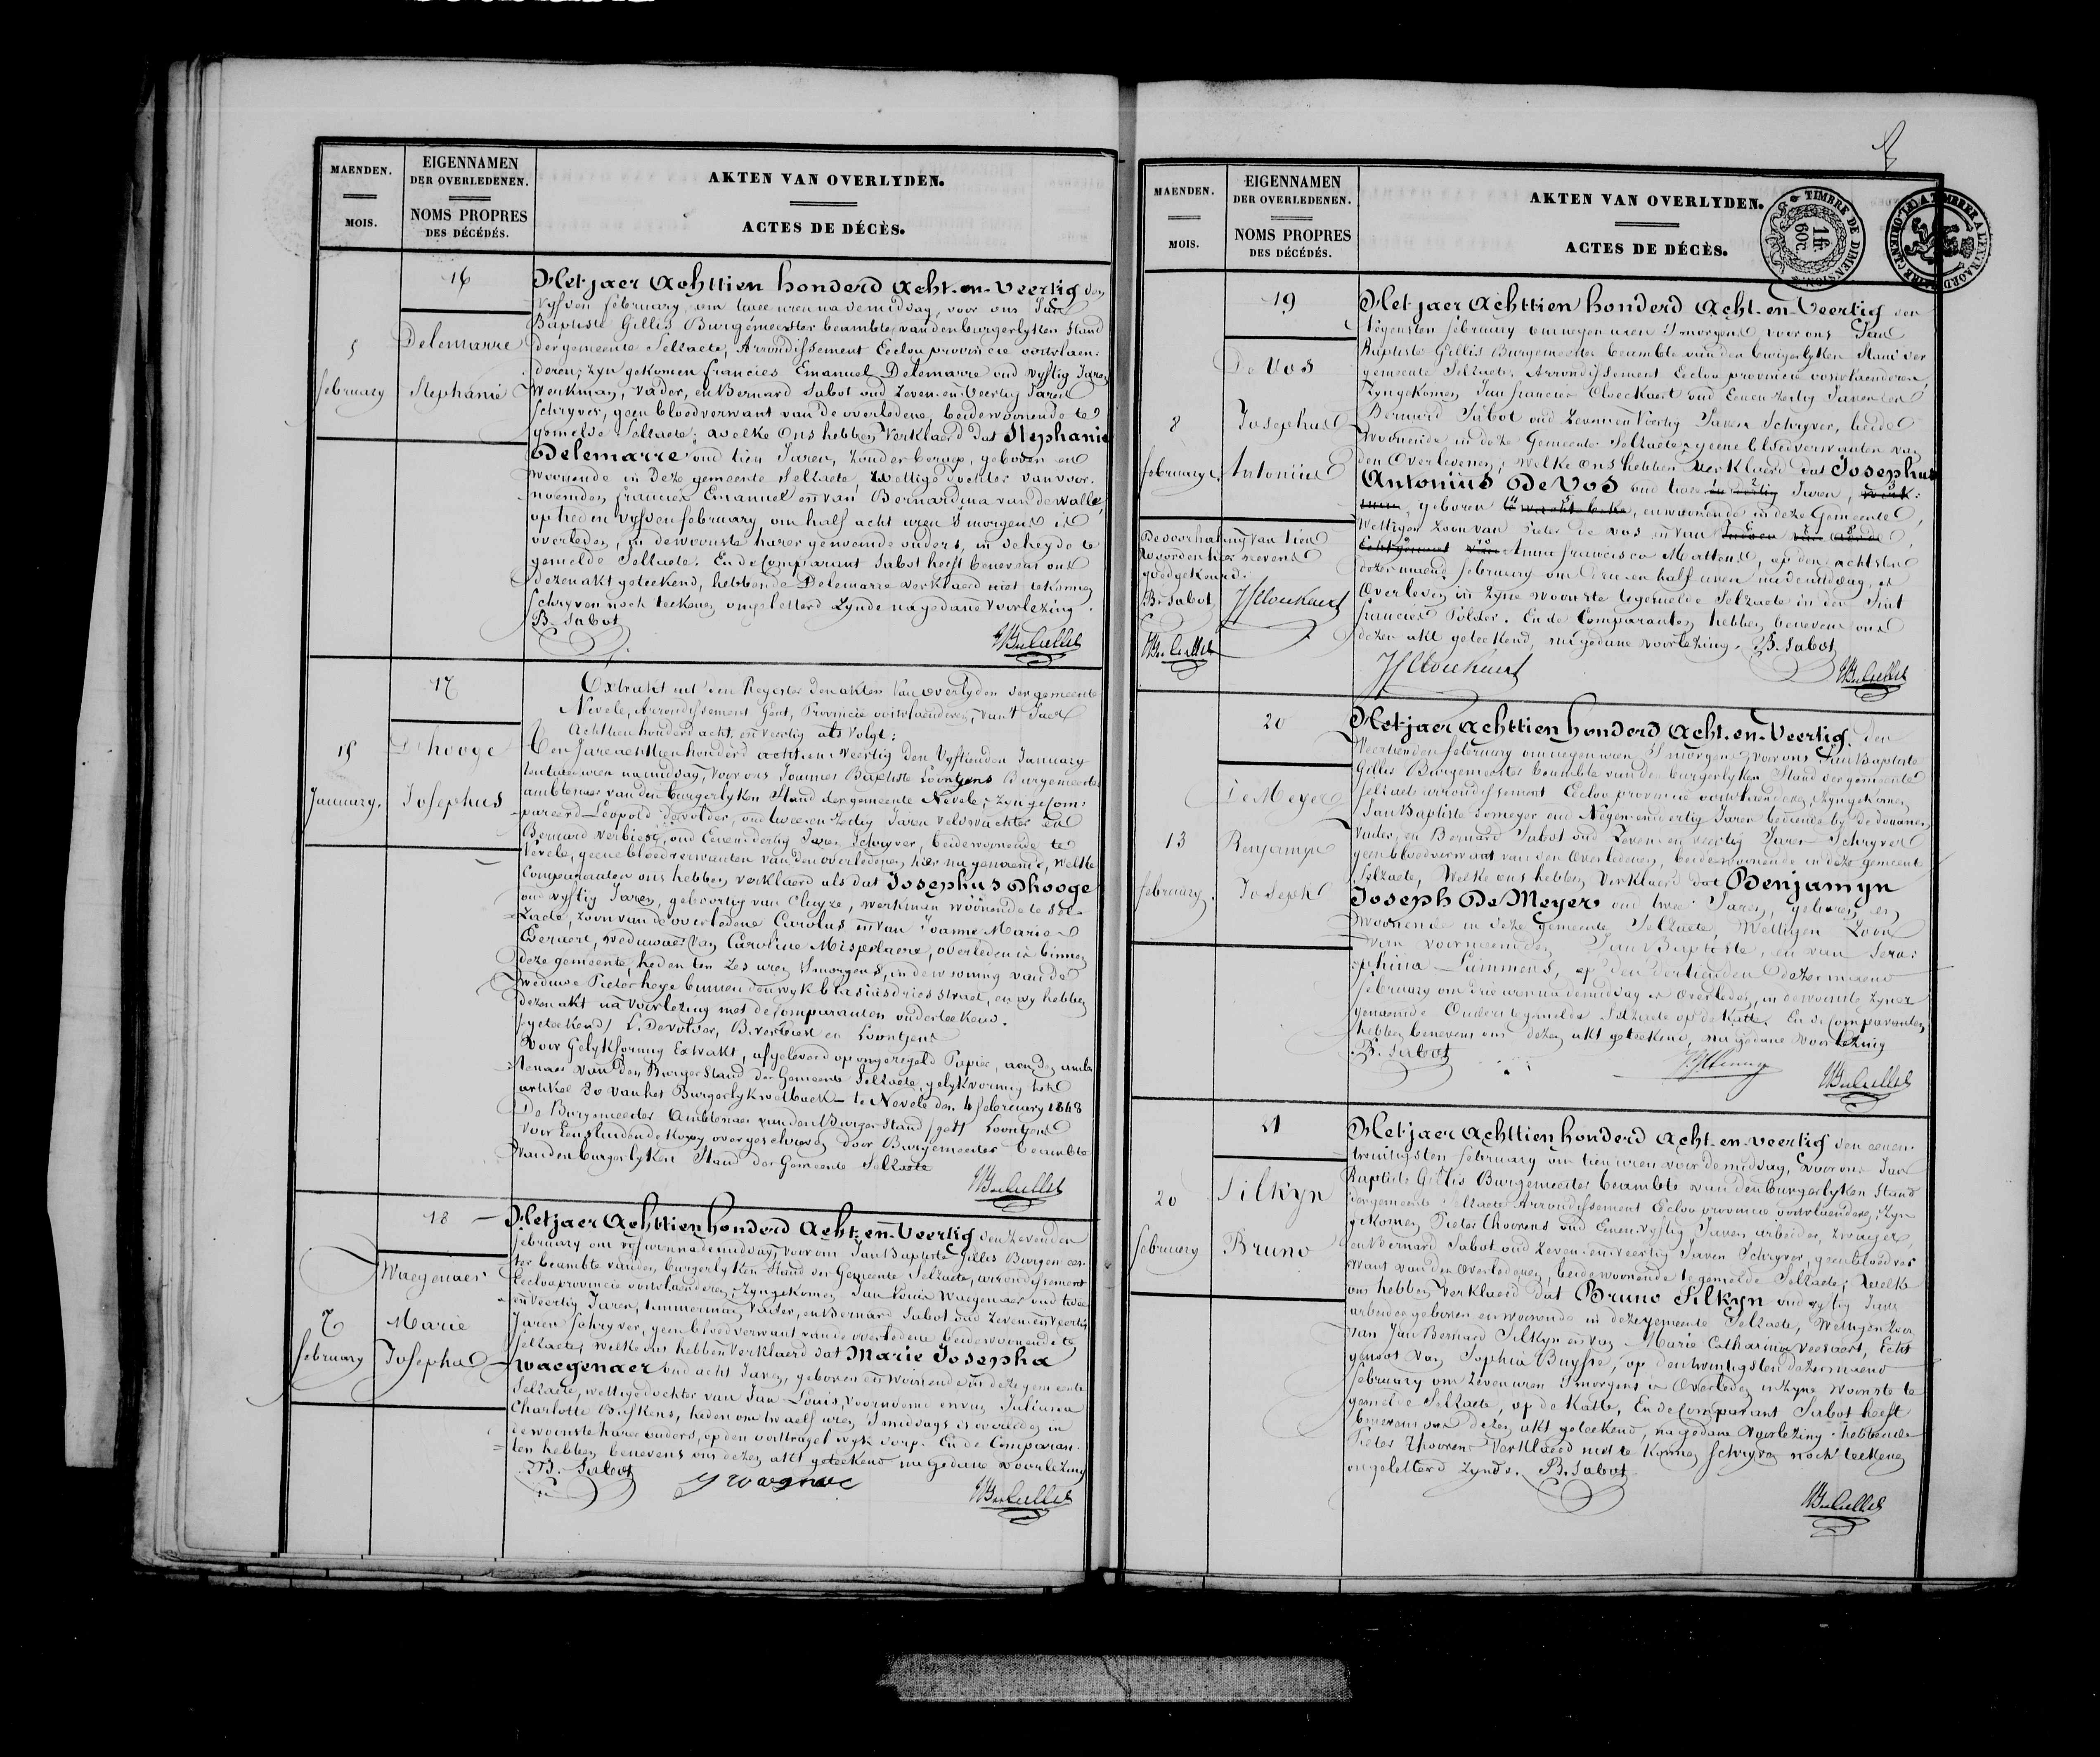 MAENDEN.
MOIS.
EIGENNAMEN
DER OVERLEDENEN.
NOMS PROPRES
DES DÉCÉDÉS.
AKTEN VAN OVERLYDEN.
ACTES DE DÉCÈS.
16
5
february
Delemarre
Stephanie
Het jaer Achttien honderd Acht-en-Veertig den
vyfden february, om twee uren na demiddag, voor ons Jan
Baptiste Gillis Burgemeester beambte van den burgerlyken Stand
der gemeente Selzaete, Arrondissement Eecloo provincie oostvlaen:
deren; zyn gekomen francies Emanuel Delemarre oud vyftig Jaren
Werkman, Vader, en Bernard Sabot oud Zeven-en-Veertig Jaren
Schryver, geen bloedverwant van de overledene, beide woonende te
gemelde Selzaete; welke Ons hebben Verklaerd dat Stephanie
Delemarre oud tien Jaren, zonder beroep, geboren en
woonende in deze gemeente Selzaete, Wettige dochter van voor:
noemden francies Emanuel en van Bernardina van de walle,
op heden vyfden february, om half acht uren s'morgens is
overleden, in dewoonste harer genoemde ouders, in Scheyde te
gemelde Selzaete. En de Comparant Sabot heeft benevens ons
dezen akt geteekend, hebbende Delemarre verklaerd niet te konnen
Schryven noch teekenen ongeletterd Zynde na gedane Voorlezing.
B. Sabot
17
15
January.
Dhooge
Josephus
Extrakt uit den Register den akten van overlyden der gemeente
Nevele, Arrondissement Gent, Provincie oostvlaenderen, van 't Jaer
Achttien honderd acht en veertig als Volgt:
Ten Jare achttien honderd acht en Veertig den Vyftienden January
ten twee uren namiddag, Voor ons Joannes Baptiste Loontjens Burgemeester
amblenaer van den burgerlyken Stand der gemeente Nevele, Zyn gecom:
pareerd Leopold Devolder, oud twee en Zestig Jaren Veldwachter en
Bernard Verbiest, oud Eenendertig Jaren Schryver, beide woonende te
Nevele, geene bloedverwanten van den overledenen hier na genoemd, Welke
Comparanten ons hebben verklaerd als dat Josephus Dhooge
oud vyftig Jaren, geboortig van Cluyze, werkman woonende te Sel:
zaete, zoon van de overledene Carolus en van Joanna Marie
Geraert, weduwaer van Caroline Mispelaere, overleden is binnen
deze gemeente, heden ten Zes uren S'morgens, in de wooning van de
weduwe Pieter heye binnen den wyk blasius dries straet, en wy hebben
dezen akt na Voorlezing met de Comparanten onderteekend.
(geteekend) L. Devolder, B. verbiest en Loontjens
Voor Gelykformig Extrakt, afgeleverd op ongezegeld Papier, aen den amb:
tenaer van den Burger Stand der Gemeente Selzaete, gelykvormig het
artikel 80 van het Burgerlyk wetboek — te Nevele den 4 february 1848
De Burgemeester Amblenaer van den Burger Stand (get) Loontjens
Voor Eensluidende Kopy overgeschreven door Burgemeester beambte
van den burgerlyken Stand der Gemeente Selzaete
18
7
february
Waegenaer
Marie
Josepha
Het jaer Achttien honderd Acht-en-Veertig den Zevenden
february om vyf uren na demiddag, voor ons Jan Baptiste Gillis Burgemees:
ter beambte van den burgerlyken Stand der Gemeente Selzaete, arrondissement
Eecloo provincie oostvlaenderen, Zyn gekomen Jan Louis Waegenaer oud twee
en Veertig Jaren, timmerman, Vader, en Bernard Sabot oud Zeven en Veertig
Jaren Schryver, geen bloedverwant van de overledene beide woonende te
Selzaete, welke ons hebben Verklaerd dat Marie Josepha
Waegenaer oud acht Jaren, geboren en Woonende in deze gemeente
Selzaete, wettige dochter van Jan Louis, Voornoemd en van Juliana
Charlotte Buskens, heden om twaelf uren s'middags is overleden in
dewoonste harer ouders, op den oosttragel wyk dorp. En de Comparan:
ten hebben benevens ons dezen akt geteekend na gedane voorlezing
B. Sabot
MAENDEN.
MOIS.
EIGENNAMEN
DER OVERLEDENEN.
NOMS PROPRES
DES DÉCÉDÉS.
AKTEN VAN OVERLYDEN.
ACTES DE DÉCÈS.
TIMBRE DE DIMENSION
1 fr.
60 c
19
8
february.
De Vos
Josephus
Antonius
De doorhaling van tien
woorden hier nevens
goedgekeurd.
B. Sabot
Het jaer Achttien honderd Acht-en-Veertig den
negensten february om negen uren S'morgens voor ons Jan
Baptiste Gillis Burgemeester beambte van den burgerlyken Stand der
gemeente Selzaete, Arrondissement Eecloo provincie oostvlaenderen,
Zyn gekomen Jan francies Cloeckaert oud Eenen zestig Jaren en
Bernard Sabot oud Zeven en Veertig Jaren Schryver, beide
woonende in deze Gemeente Selzaete, geene bloedverwanten van
den Overledenen; welke ons hebben Verklaerd dat Josephus
Antonius De Vos oud twee en dertig Jaren,
geboren en woonende in deze Gemeente,
Wettigen Zoon van Pieter de vos en van
Anna francisca Mattens, op den achtsten
dezer maend february om drie en half uren na demiddag, is
Overleden in Zyne woonste te gemelde Selzaete in den Sint
francies Polder. En de Comparanten hebben benevens ons
dezen akt geteekend, na gedane voorlezing. B. Sabot
20
13
february.
De Meyer
Benjamyn
Joseph
Het jaer Achttien honderd Acht-en-Veertig den
Veertienden february om negen uren S'morgens voor ons Jan Baptiste
Gillis Burgemeester beambte van den burgerlyken Stand der gemeente
Selzaete arrondissement Eecloo provincie oostvlaenderen, Zyn gekomen
Jan Baptiste Demeyer oud Negen en dertig Jaren bediende by de douanen
Vader, en Bernard Sabot oud Zeven en veertig Jaren Schryver
geen bloedverwant van den Overledenen, beide woonende in deze gemeente
Selzaete, Welke ons hebben Verklaerd dat Benjamyn
Joseph De Meyer oud twee Jaren, geboren en
woonende in deze gemeente Selzaete, Wettigen Zoon
van voornoemden Jan Baptiste, en van Sera:
phina Lammens, op den dertienden dezer maend
february om drie uren na demiddag is Overleden, in dewoonste zyner
genoemde Ouders te gemelde Selzaete op de Katte. En de Comparanten
hebben benevens ons dezen akt geteekend, na gedane Voorlezing
B. Sabot
21
20
february
Silkyn
Bruno
Het jaer Achttien honderd Acht-en-Veertig den eenen-
twintigsten february om tien uren voor demiddag, Voor ons Jan
Baptiste Gillis Burgemeester beambte van den burgerlyken Stand
der gemeente Selzaete Arrondissement Eecloo provincie oostvlaenderen, Zyn
gekomen Pieter Thoorens oud Eenen Vyftig Jaren arbeider, Zwager,
en Bernard Sabot oud Zeven en Veertig Jaren Schryver, geen bloedver
want van den Overledenen, beide woonende te gemelde Selzaete; Welke
ons hebben Verklaerd dat Bruno Silkyn oud vyftig Jaren
arbeider geboren en woonende in deze gemeente Selzaete, Wettigen Zoon
van Jan Bernard Silkyn en van Marie Catharina Veesaert, Echt
genoot van Sophia Buysse, op den twintigsten dezer maend
february om Zeven uren S'morgens is Overleden in Zyne Woonste te
gemelde Selzaete, op de Katte, En de Comparant Sabot heeft
benevens ons dezen akt geteekend, na gedane Voorlezing hebbende
Pieter Thoorens Verklaerd niet te konnen Schryven noch teekenen
ongeletterd zynde. B. Sabot